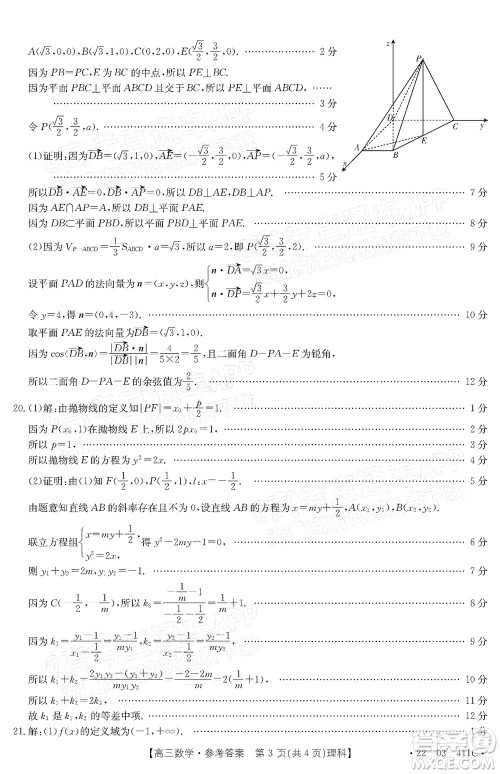 A(√3,0,0),B(√3,1,0),C(0,2,0),E(√3/2,3/2,0). …… 2 分
因为 PB=PC,E 为 BC 的中点,所以 PE⊥BC.
因为平面 PBC⊥平面 ABCD 且交于 BC,所以 PE⊥平面 ABCD. ……
…… 3 分
令 P(√3/2,3/2,a). …… 4 分
(1)证明:因为DB=(√3,1,0),AE=(-√3/2,3/2,0),AP=(-√3/2,3/2,a),
…… 5 分
所以DB·AE=0,DB·AP=0,所以 DB⊥AE,DB⊥AP. …… 7 分
因为 AE∩AP=A,所以 DB⊥平面 PAE.
因为 DB⊂平面 PBD,所以平面 PBD⊥平面 PAE. …… 8 分
(2)因为 V_{P-ABCD}=1/3 S_{ABCD}·a=√3,所以 a=2,即 P(√3/2,3/2,2). …… 9 分
设平面 PAD 的法向量为 n=(x,y,z),则{n·DA=√3x=0 n·DP=√3/2x+3/2y+2z=0,
令 y=4,得 n=(0,4,-3). …… 10 分
取平面 PAE 的法向量为DB=(√3,1,0).
因为 cos⟨DB,n⟩=|DB·n|/|DB||n|=4/(5×2)=2/5,且二面角 D-PA-E 为锐角,
所以二面角 D-PA-E 的余弦值为2/5. …… 12 分
20.(1)解:由抛物线的定义知|PF|=x₀+p/2=1. …… 1 分
因为 P(x₀,1)在抛物线 E 上,所以 2px₀=1. …… 2 分
所以 p=1, …… 3 分
所以抛物线 E 的方程为 y²=2x. …… 4 分
(2)证明:由(1)知 F(1/2,0),P(1/2,1),l:x=-1/2. …… 5 分
由题意知直线 AB 的斜率存在且不为 0,设直线 AB 的方程为 x=my+1/2.
联立方程组{x=my+1/2 y²=2x, …… 6 分
则 y₁+y₂=2m,y₁y₂=-1. …… 7 分
因为 C(-1/2,-1/m),所以 k₃=(-1/m-1)/(-1/2-1/2)=1/m+1. …… 8 分
因为 k₁=(y₁-1)/(x₁-1/2)=(y₁-1)/my₁,k₂=(y₂-1)/my₂, …… 9 分
所以 k₁+k₂=(2y₁y₂-(y₁+y₂))/my₁y₂=(-2-2m)/-m=2/m+2. …… 10 分
所以 k₁+k₂=2k₃, …… 11 分
故 k₃ 是 k₁,k₂ 的等差中项. …… 12 分
21.解:(1)f(x)的定义域为(0,+∞). …… 1 分
【高三数学·参考答案 第 3 页(共 4 页)理科】
·22-03-411C·
z
P
D
C
y
A
B
E
x